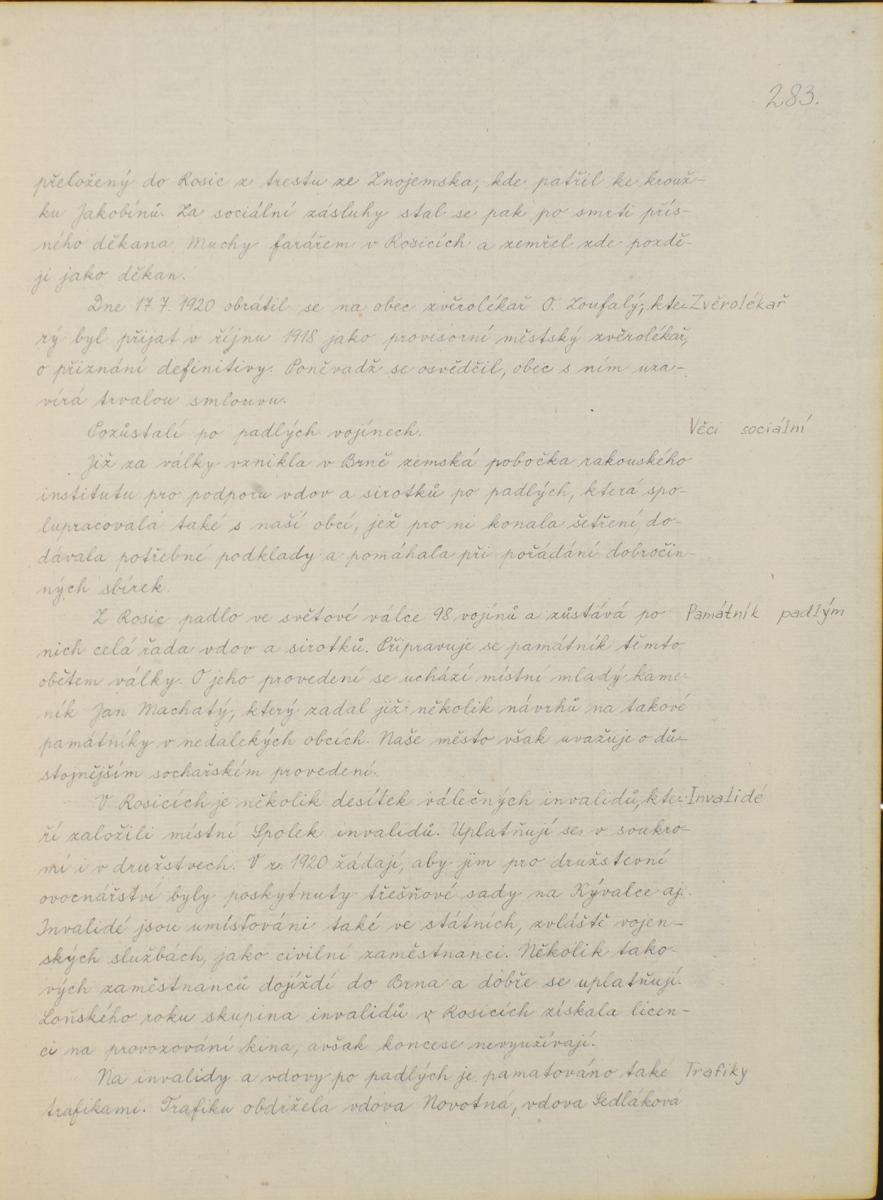 283.
přeložený do Rosic z trestu ze Znojemska, kde patřil ke krouž-
ku Jakobínů. Za sociální zásluhy stal se pak po smrti přís-
ného děkana Muchy farářem v Rosicích a zemřel zde pozdě-
ji jako děkan.
Dne 17.7. 1920 obrátil se na obec zvěrolékař O. Zoufalý, kte- Zvěrolékař
rý byl přijat v říjnu 1918 jako provisorní městský zvěrolékař,
o přiznání definitivy. Poněvadž se osvědčil, obec s ním uza-
vírá trvalou smlouvu.
Pozůstalí po padlých vojínech. Věci sociální
Již za války vznikla v Brně zemská pobočka rakouského
institutu pro podporu vdov a sirotků po padlých, která spo-
lupracovala také s naší obcí, jež pro ni konala šetření, do-
dávala potřebné podklady a pomáhala při pořádání dobročin-
ných sbírek.
Z Rosic padlo ve světové válce 98 vojínů a zůstává po Památník padlým
nich celá řada vdov a sirotků. Připravuje se památník těmto
obětem války. O jeho provedení se uchází místní mladý kame-
ník Jan Machatý, který zadal již několik návrhů na takové
památníky v nedalekých obcích. Naše město však uvažuje o dů-
stojnějším sochařském provedení.
V Rosicích je několik desítek válečných invalidů, kte- Invalidé
ří založili místní Spolek invalidů. Uplatňují se v soukro-
mí i v družstvech. V r. 1920 žádají, aby jim pro družstevní
ovocnářství byly poskytnuty třešňové sady na Kývalce aj.
Invalidé jsou umísťováni také ve státních, zvláště vojen-
ských službách, jako civilní zaměstnanci. Několik tako-
vých zaměstnanců dojíždí do Brna a dobře se uplatňují.
Loňského roku skupina invalidů v Rosicích získala licen-
ci na provozování kina, avšak koncese nevyužívají.
Na invalidy a vdovy po padlých je pamatováno také Trafiky
trafikami. Trafiku obdržela vdova Novotná, vdova Sedláková